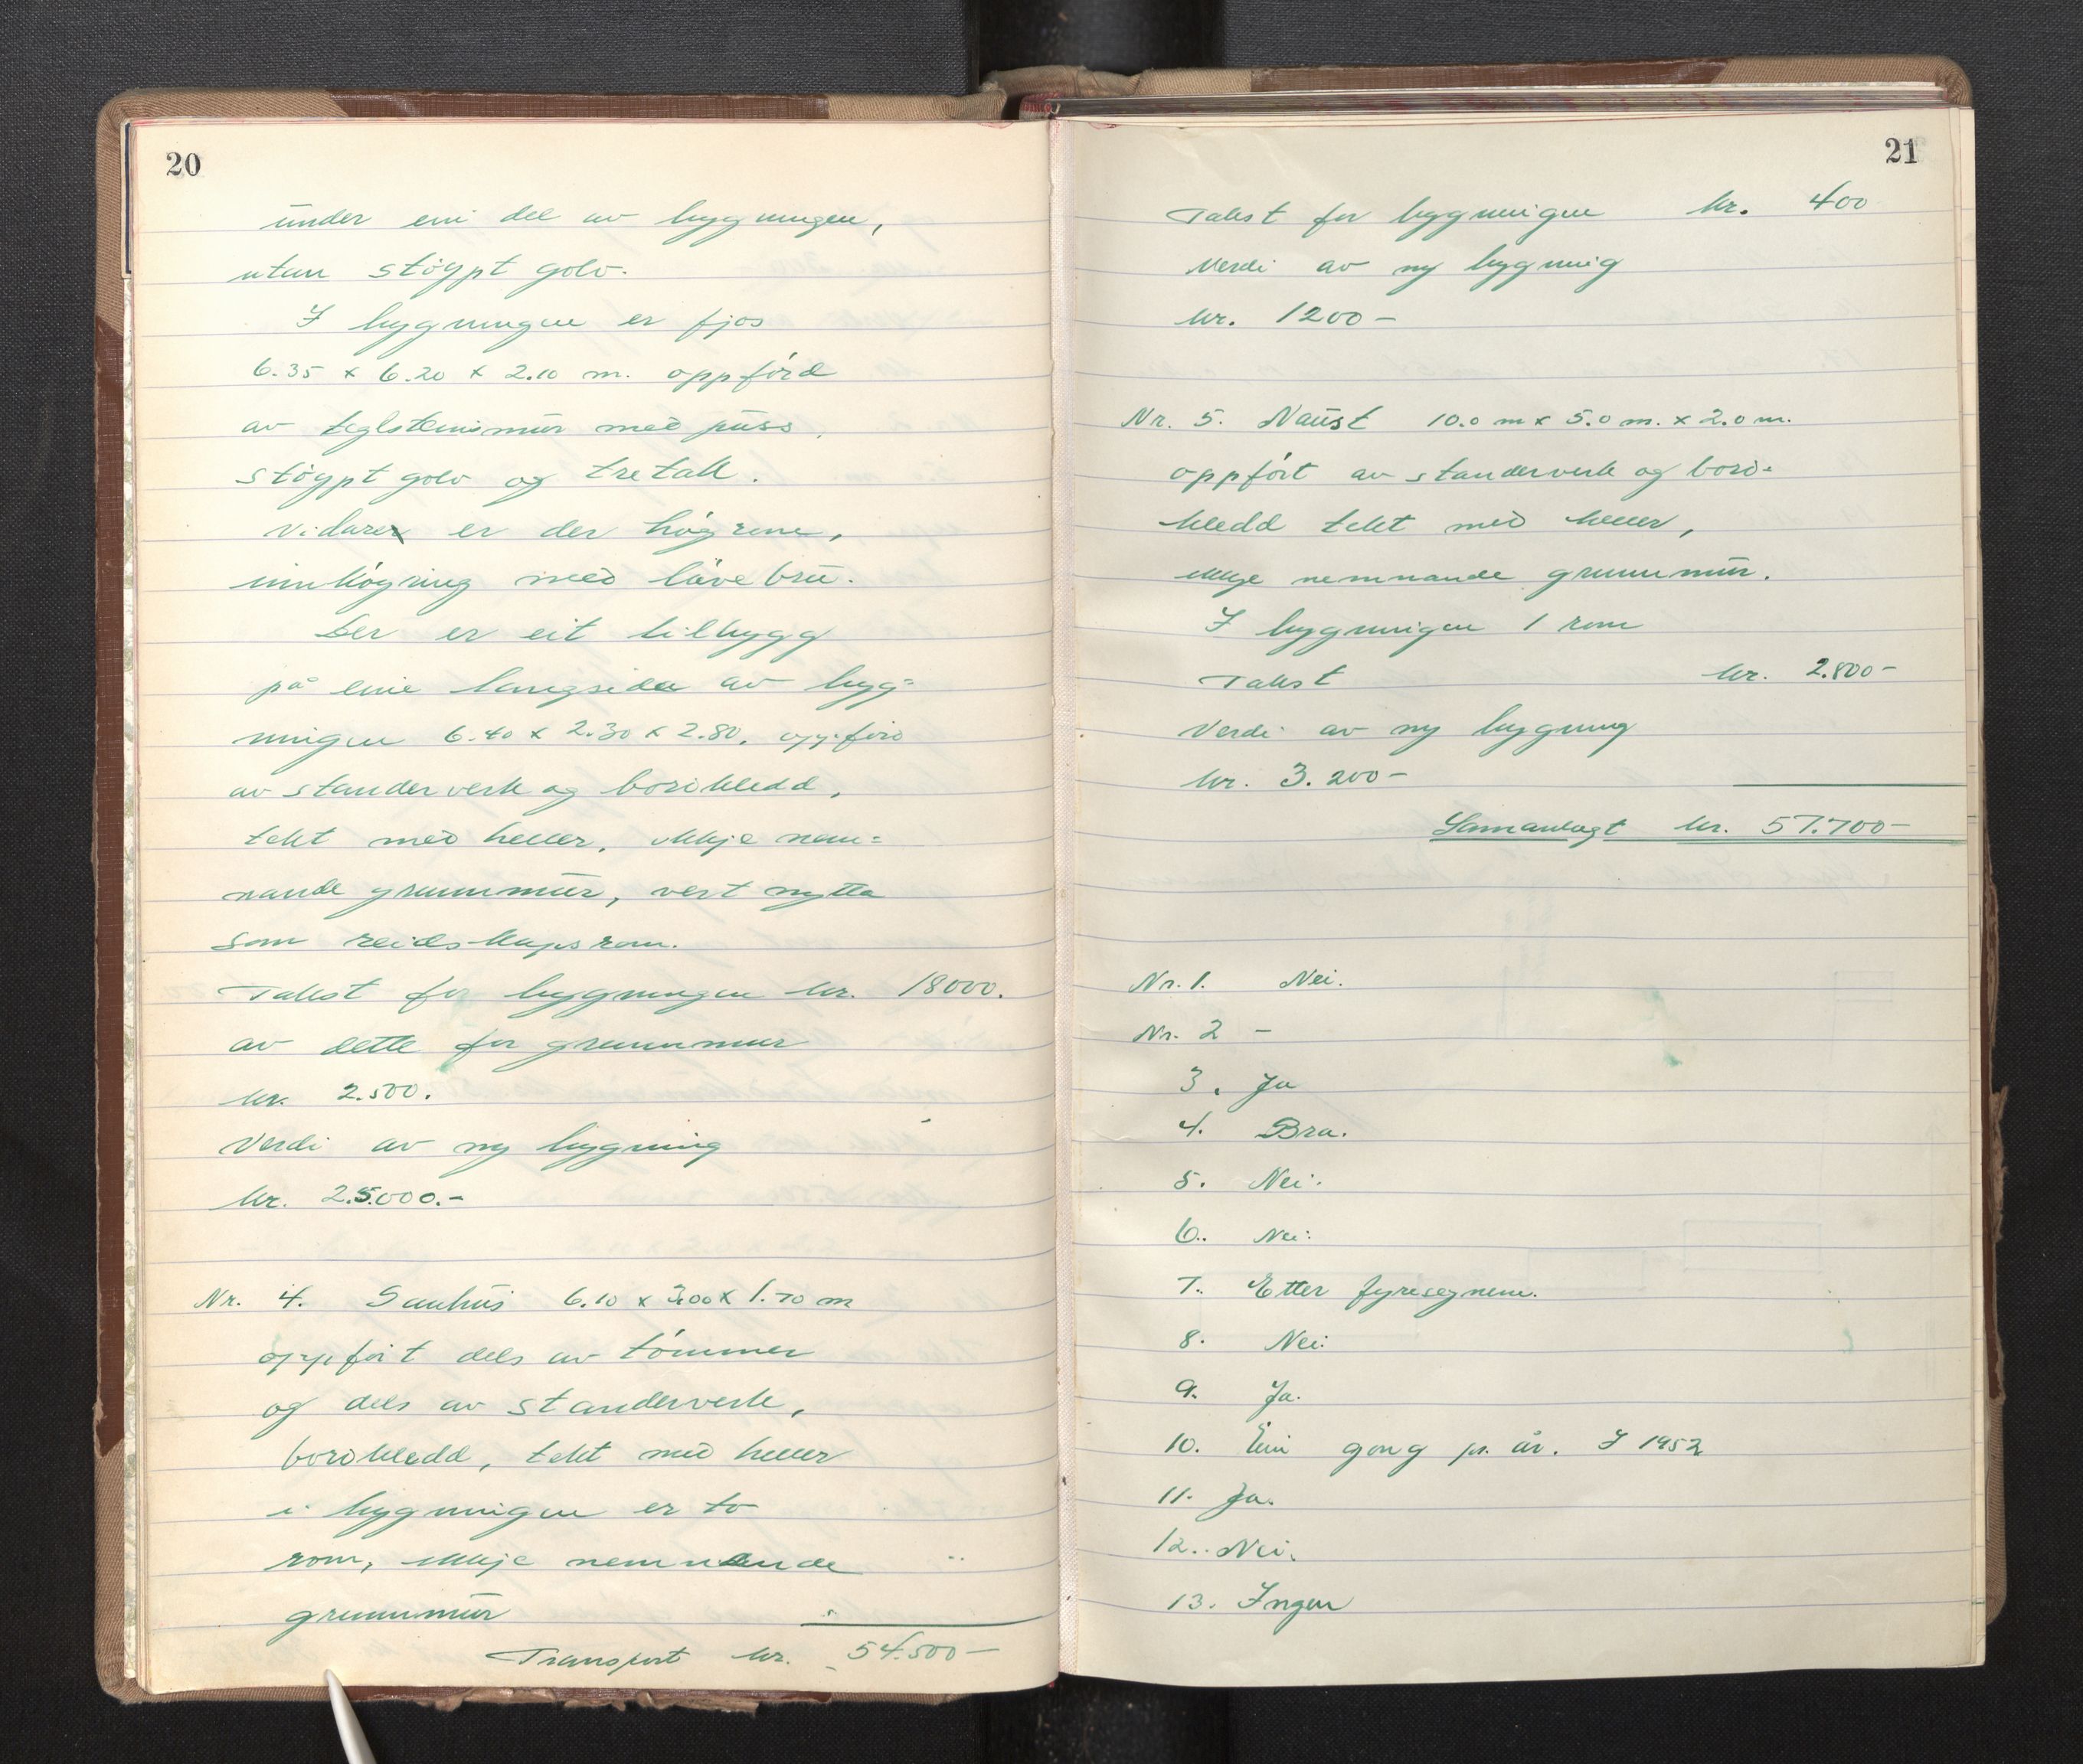 20
under ein del av bygningen,
utan støypt golv.
I bygningen er fjøs
6.35 x 6.20 x 2.10 m. oppförd
av teglsteinsmur med puss,
støypt golv og tretak.
Vidare er der høyrom,
innkøyring med låvebru.
Der er eit tilbygg
på eine langsida av byg=
ningen 6.40 x 2.30 x 2.80, oppförd
av standerverk og bordkledd,
tekt med heller, ikkje nem=
nande grunnmur, vert nytta
som reidskapsrom.
Takst for bygningen kr. 18000.
av dette for grunnmur
kr. 2.500.
Verdi av ny bygning
kr. 25.000.-
Nr. 4. Sauhus 6.10 x 3.00 x 1.70 m
oppført dels av tömmer
og dels av standerverk,
bordkledd, tekt med heller
i bygningen er to
rom, ikkje nemnande
grunnmur
Transport kr. 54.500-
21
Takst for bygningen kr. 400
Verdi av ny bygning
kr. 1200-
Nr. 5. Naust 10.0 m x 5.0 m. x 2.0 m.
oppført av standerverk og bord=
kledd tekt med heller,
ikkje nemnande grunnmur.
I bygningen 1 rom
Takst kr. 2.800-
Verdi av ny bygning
kr. 3.200-
Samanlagt kr. 57.700-
Nr. 1. Nei.
Nr. 2 -
3. Ja
4. Bra.
5. Nei.
6. Nei.
7. Etter fyresegnene.
8. Nei.
9. Ja.
10. Ein gong pr. år. I 1952
11. Ja.
12. Nei.
13. Ingen